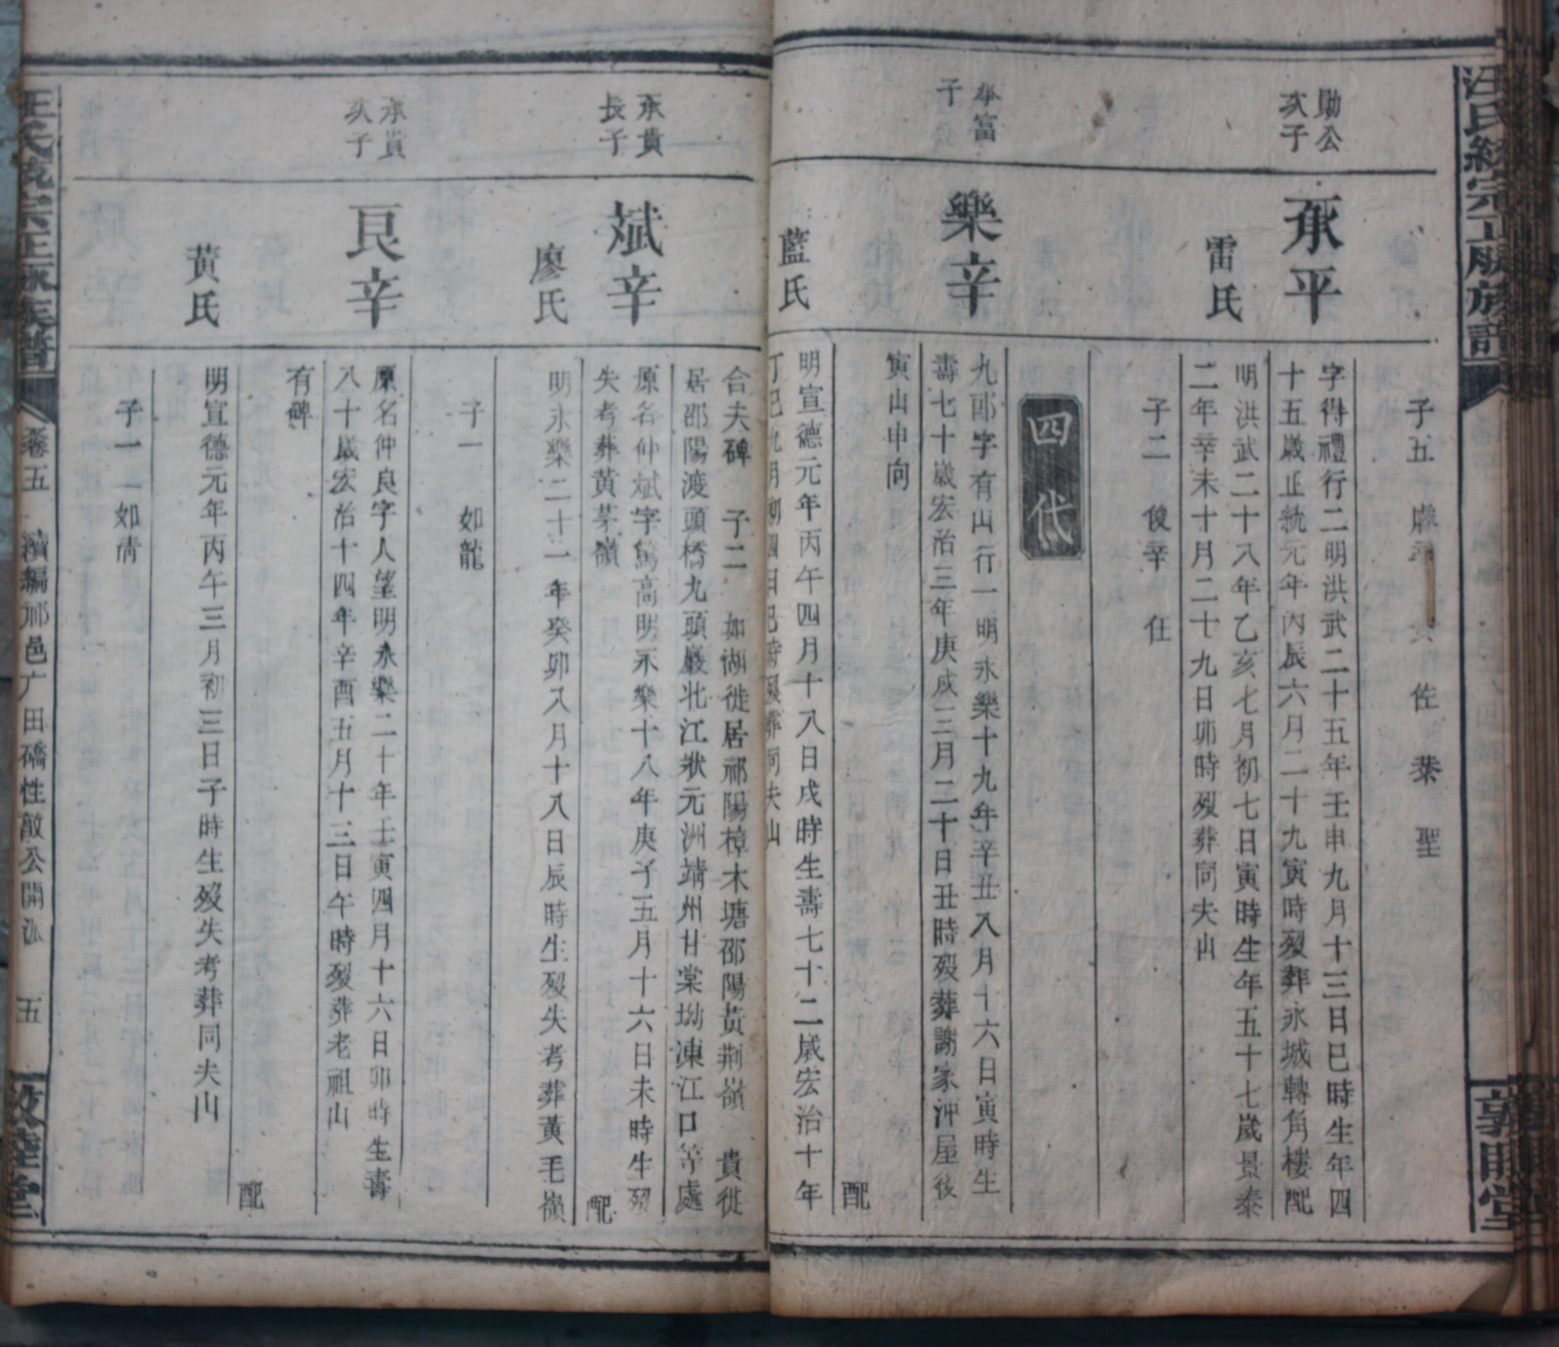 子五 佐 聖
勛公
次子
承平
雷氏
字得禮行二明洪武二十五年壬申九月十三日巳時生年四
十五歲正統元年丙辰六月二十九寅時歿葬永城轉角樓配
明洪武二十八年乙亥七月初七日寅時生年五十七歲景泰
二年辛未十月二十九日卯時歿葬同夫山
子二 俊辛 任
四代
承富
子
樂辛
藍氏
九郎字有山行一明永樂十九年辛丑八月十六日寅時生
壽七十歲宏治三年庚戌三月二十日丑時歿葬謝家沖屋後
寅山申向
配
明宣德元年丙午四月十八日戌時生壽七十二歲宏治十年
丁巳九月初四日巳時歿葬同夫山
合夫碑 子二 如湖徙居祁陽樟木塘邵陽黃荆嶺 貴徙
居邵陽渡頭橋九頭巖北江狀元洲靖州甘棠坳凍江口等處
承貴
長子
斌辛
廖氏
原名仲斌字篤高明永樂十八年庚子五月十六日未時生歿
失考葬黃茅嶺
配
明永樂二十一年癸卯八月十八日辰時生歿失考葬黃毛嶺
子一 如龍
承貴
次子
良辛
黃氏
原名仲良字人望明永樂二十年壬寅四月十六日卯時生壽
八十歲宏治十四年辛酉五月十三日午時歿葬老祖山
有碑
配
明宣德元年丙午三月初三日子時生歿失考葬同夫山
子一 如倩
汪氏統宗正脉族譜
卷五 續編邵邑廣田礄性敵公開派 五
敦睦堂